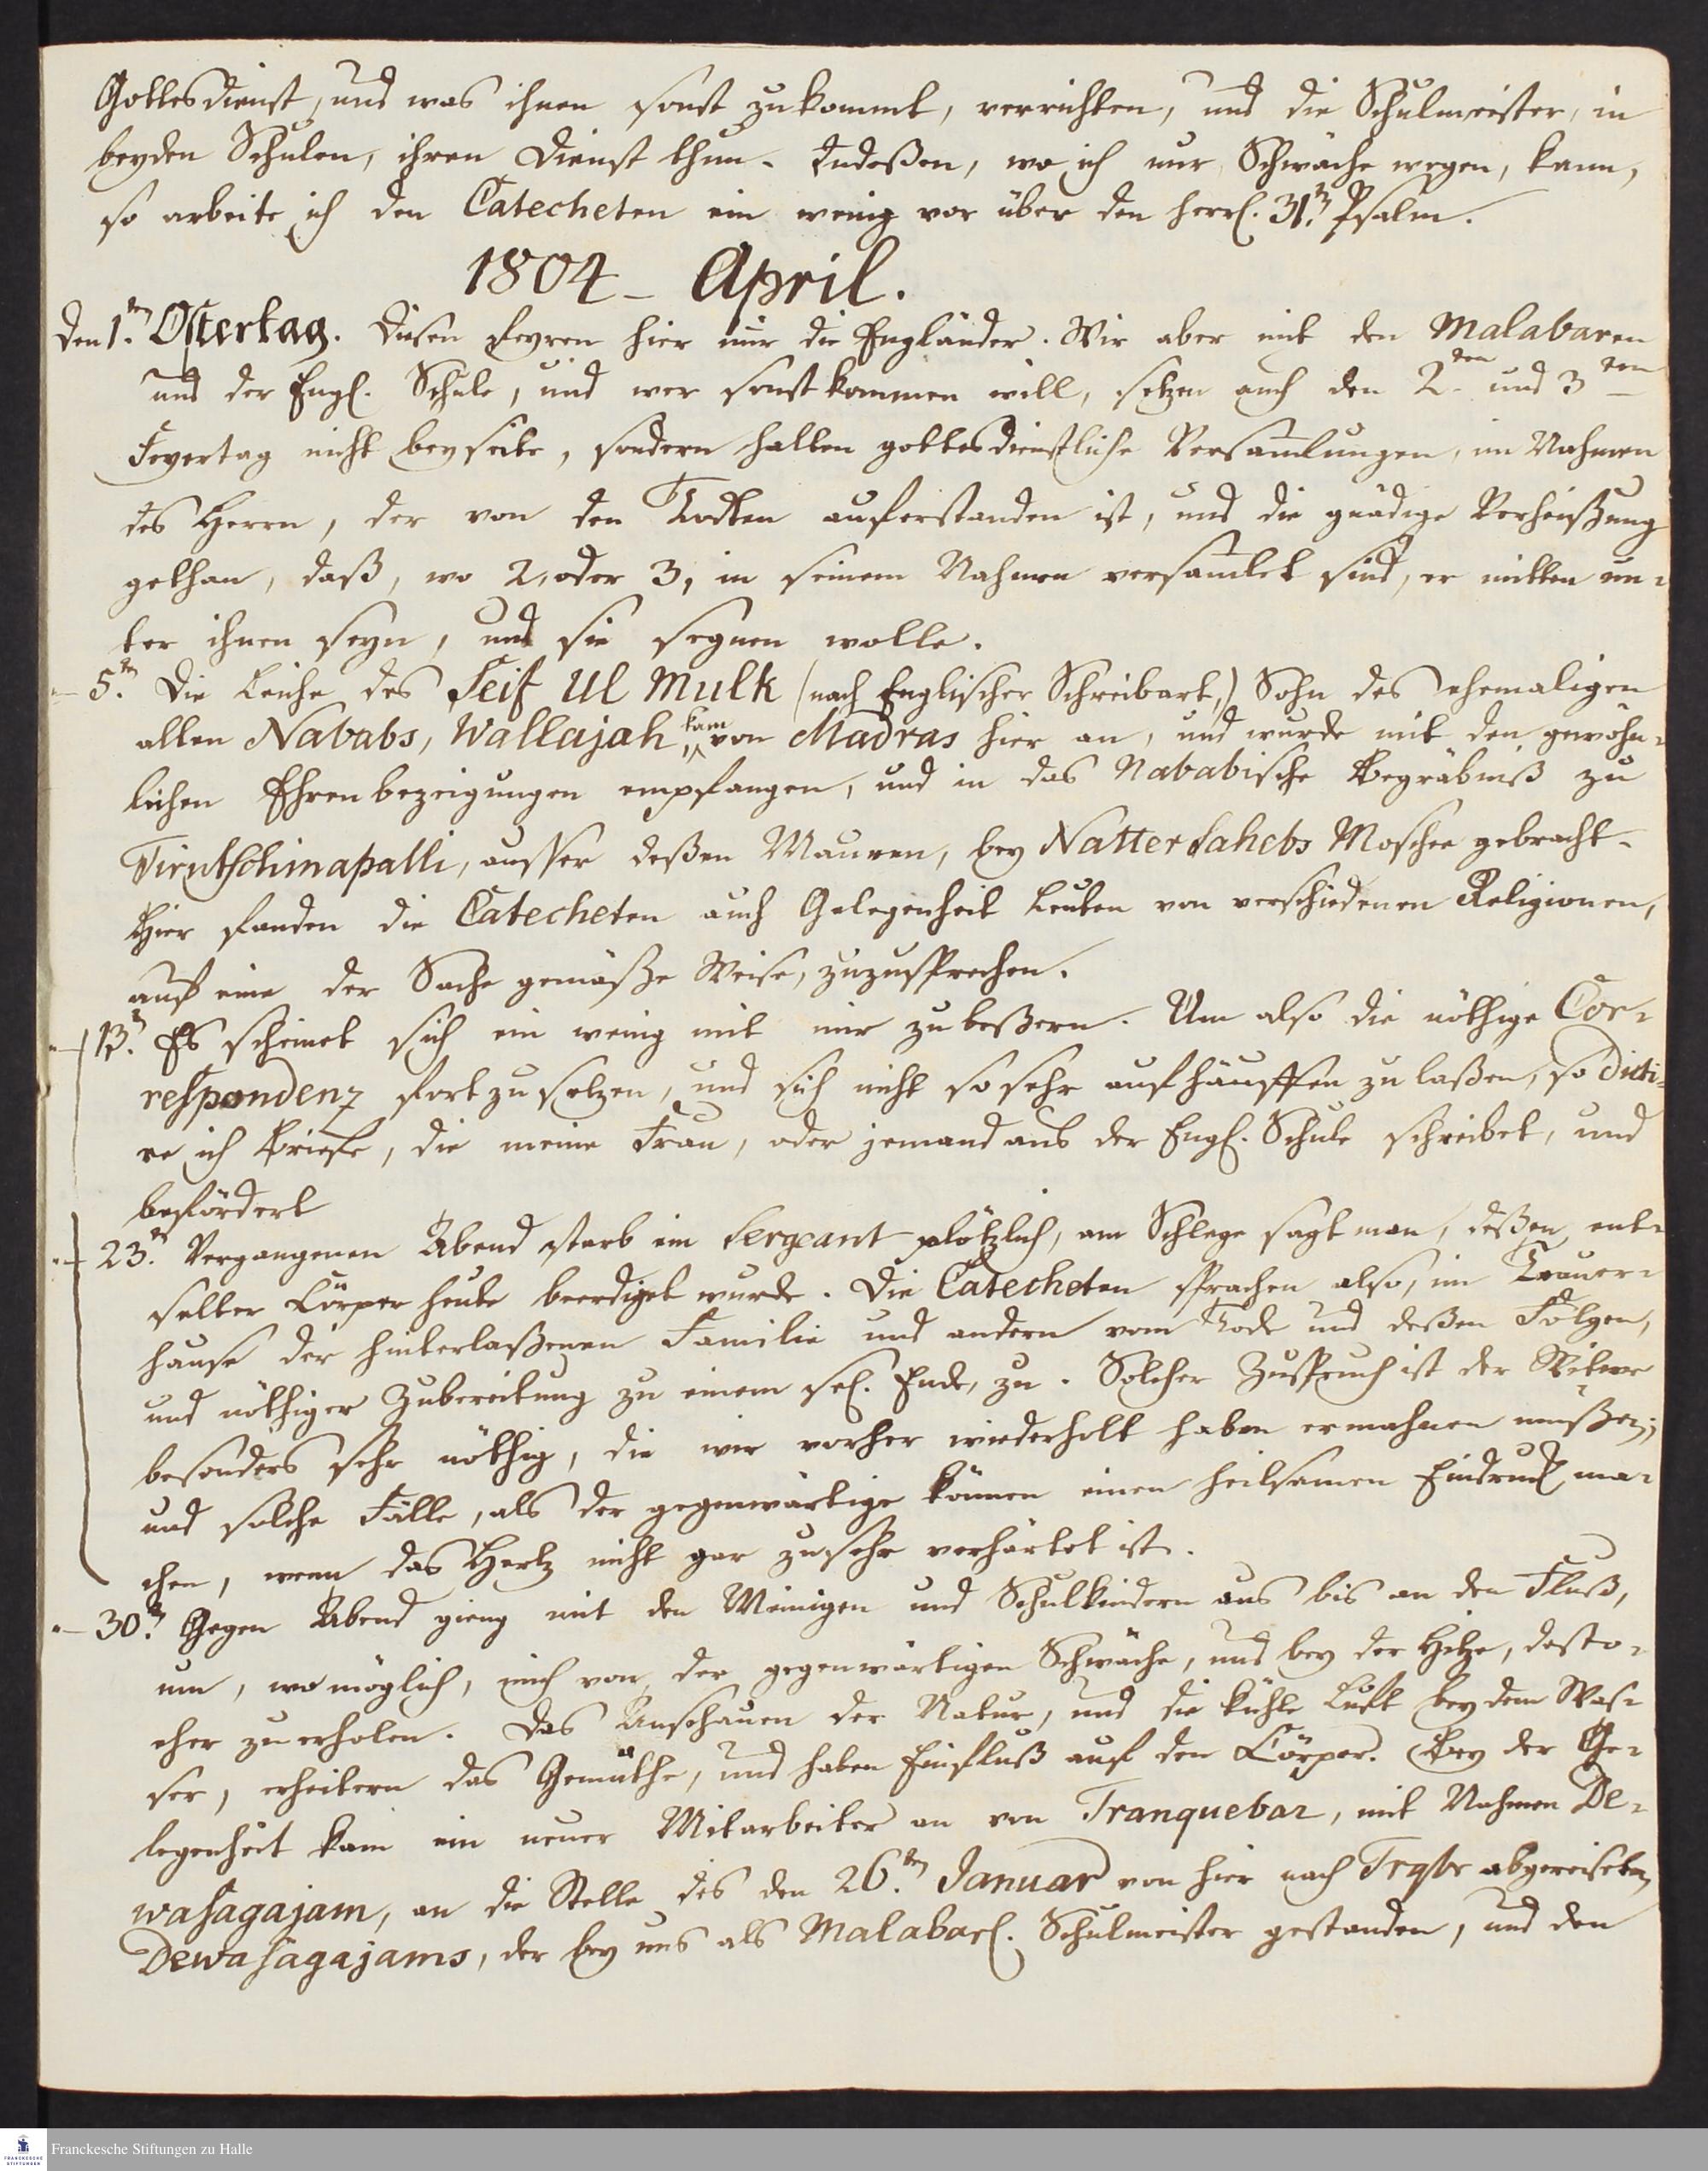 Gottesdienst, und was ihnen sonst zukommt, verrichten, und die Schulmeister, in
beyden Schulen, ihren Dienst thun. Indeßen, wo ich nur, Schwäche wegen, kann,
so arbeite ich den Catecheten ein wenig vor über den herrl. 31.n Psalm.
1804 – April.
Den 1.ten Ostertag. Diesen feyren hier nur die Engländer. Wir aber mit den Malabaren
und der Engl. Schule, und wer sonst kommen will, setzen auch den 2ten und 3ten
Feyertag nicht beyseite, sondern halten gottesdienstliche Versam̅lungen, im Nahmen
des Herrn, der von den Todten auferstanden ist, und die gnädige Verheißung
gethan, daß, wo 2, oder 3, in seinem Nahmen versam̅let sind, er mitten un-
ter ihnen seyn, und sie segnen wolle.
– 5.tn Die Leiche des Seif Ul Mulk (nach Englischer Schreibart,) Sohn des ehemaligen
alten Nababs, Wallajah, kam von Madras hier an, und wurde mit den gewöhn-
lichen Ehrenbezeigungen empfangen, und in das Nababische Begräbniß zu
Tirutschinapalli, ausser deßen Mauren, bey Natter Sahebs Moschee gebracht.
Hier fanden die Catecheten auch Gelegenheit Leuten von verschiedenen Religionen,
auf eine der Sache gemäße Weise, zuzusprechen.
– 13.n Es scheinet sich ein wenig mit mir zu beßern. Um also die nöthige Cor-
respondenz fortzusetzen, und sich nicht so sehr aufhäuffen zu laßen, so dicti-
re ich Briefe, die meine Frau, oder jemand aus der Engl. Schule schreibet, und
befördert
– 23.n Vergangenen Abend starb ein Sergeant plötzlich, am Schlage sagt man, deßen ent-
seelter Körper heute beerdiget wurde. Die Catecheten sprachen also, im Trauer-
hause der hinterlaßenen Familie und andern vom Tode und deßen Folgen,
und nöthiger Zubereitung zu einem sel. Ende, zu. Solcher Zuspruch ist der Witwe
besonders sehr nöthig, die wir vorher wiederholt haben ermahnen müßen;
und solche Fälle, als der gegenwärtige können einen heilsamen Eindruck ma-
chen, wenn das Hertz nicht gar zu sehr verhärtet ist.
– 30.n Gegen Abend gieng mit den Meinigen und Schulkindern aus bis an den Fluß,
um, wo möglich, mich von der gegenwärtigen Schwäche, und bey der Hitze, desto-
eher zu erholen. Das Anschauen der Natur, und die kühle Luft bey dem Was-
ser, erheitern das Gemüthe, und haben Einfluß auf den Körper. Bey der Ge-
legenheit kam ein neuer Mitarbeiter an von Tranquebar, mit Nahmen De-
wasagajam, an die Stelle des den 26.tn Januar von hier nach Trqbr abgereiseten
Dewasagajams, der bey uns als Malabarl. Schulmeister gestanden, und den
Franckesche Stiftungen zu Halle
FRANCKESCHE
STIFTUNGEN